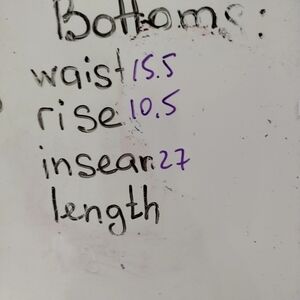 Bottoms:
waist 15.5
rise 10.5
inseam 27
length